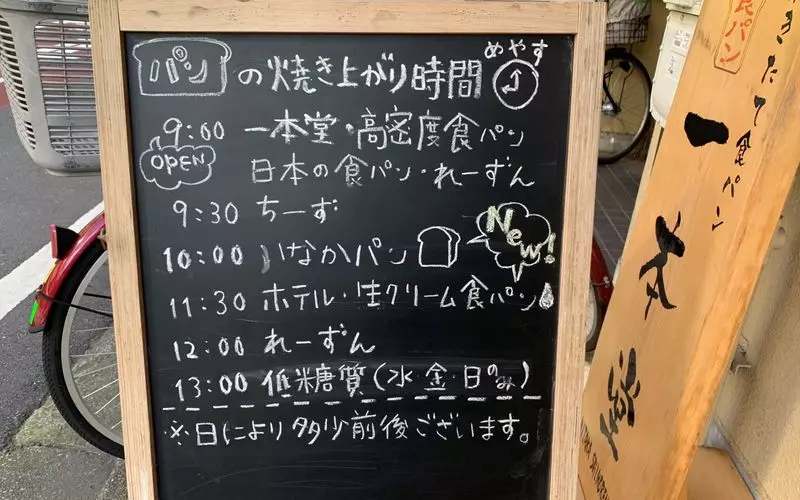 めやす
パンの焼き上がり時間
9:00 一本堂・高密度食パン
OPEN
日本の食パン・れーずん
9:30 ちーず
10:00 いなかパン
New!
11:30 ホテル・生クリーム食パン
12:00 れーずん
13:00 低糖質(水 金・日のみ)
※日により多少前後ございます。
食パン
一本堂